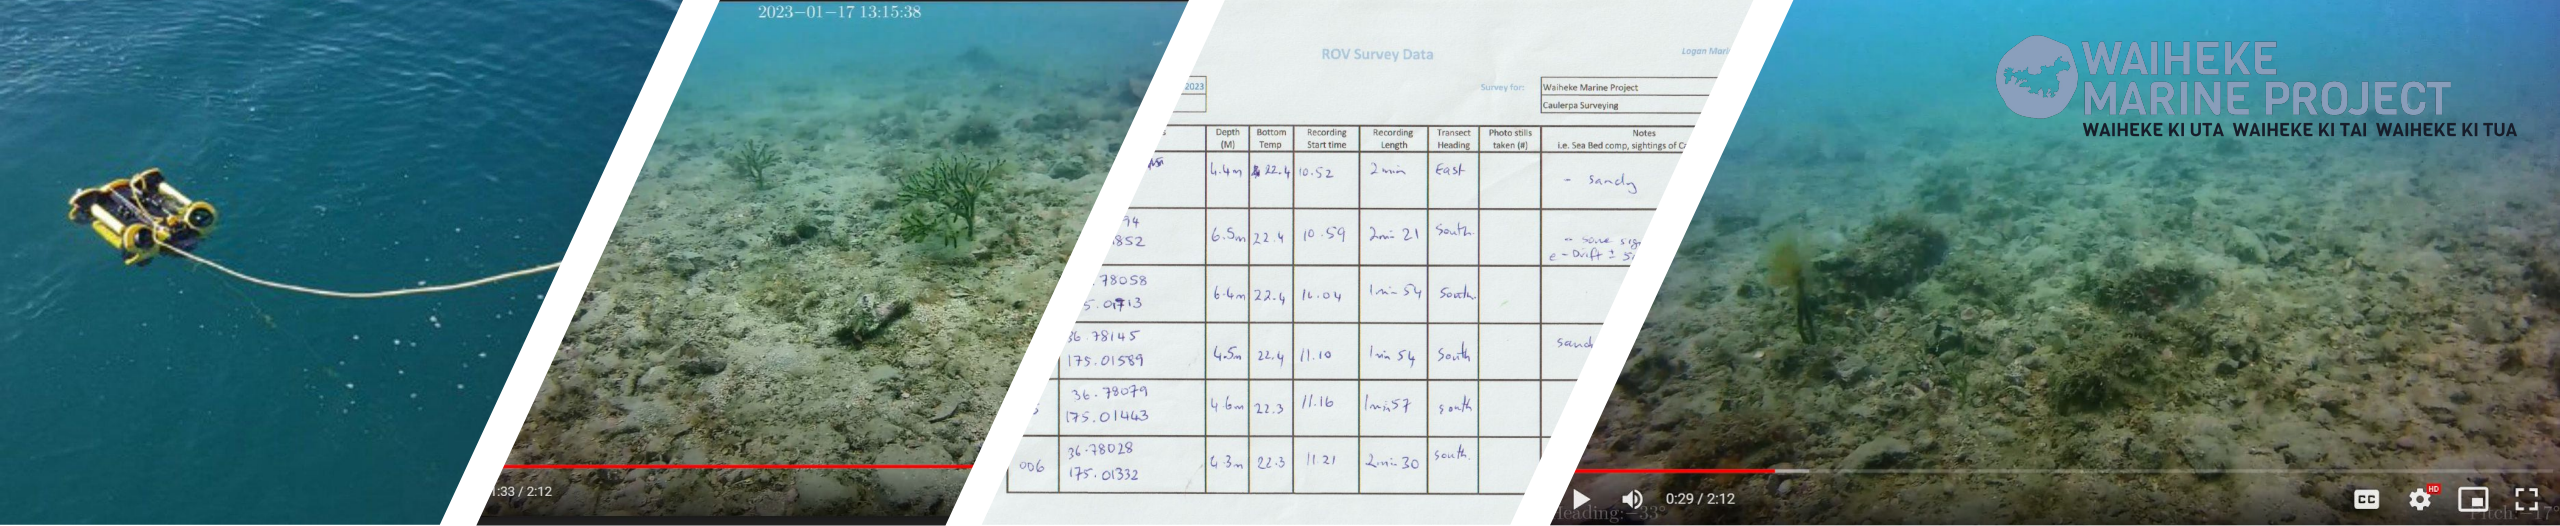 2023-01-17 13:15:38
1:33 / 2:12
ROV Survey Data
Logan Mari
2023
Survey for:
Waiheke Marine Project
Caulerpa Surveying
Depth (M)
Bottom Temp
Recording Start time
Recording Length
Transect Heading
Photo stills taken (#)
Notes
i.e. Sea Bed comp, sightings of C
4.4m 22.4 10.52 2min East - Sandy
94
852
6.5m 22.4 10.59 2min 21 South
- some sig
- Drift ± 5
.78058
5.01713
6.4m 22.4 11.04 1min 54 South
36.78145
175.01589
4.5m 22.4 11.10 1min 54 South
sand
36.78079
175.01443
4.6m 22.3 11.16 1min57 south
006
36.78028
175.01332
4.3m 22.3 11.21 2min 30 south.
WAIHEKE
MARINE PROJECT
WAIHEKE KI UTA WAIHEKE KI TAI WAIHEKE KI TUA
0:29 / 2:12
CC
HD
Heading:-33°
Pitch:-17°